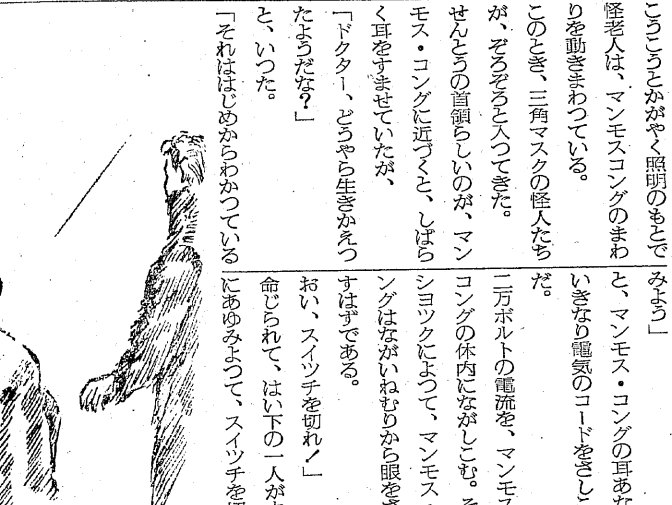 こうこうとかがやく照明のもとで
怪老人は、マンモスコングのまわ
りを動きまわつている。
このとき、三角マスクの怪人たち
が、ぞろぞろと入つてきた。
せんとうの首領らしいのが、マン
モス・コングに近づくと、しばら
く耳をすませていたが、
「ドクター、どうやら生きかえつ
たようだな?」
と、いつた。
「それははじめからわかつている
みよう」
と、マンモス・コングの耳あな
いきなり電気のコードをさしこ
だ。
二万ボルトの電流を、マンモス
コングの体内にながしこむ。そ
シヨツクによつて、マンモス・
ングはながいねむりから眼をさ
すはずである。
おい、スイツチを切れ!」
命じられて、はい下の一人が
にあゆみよつて、スイツチを